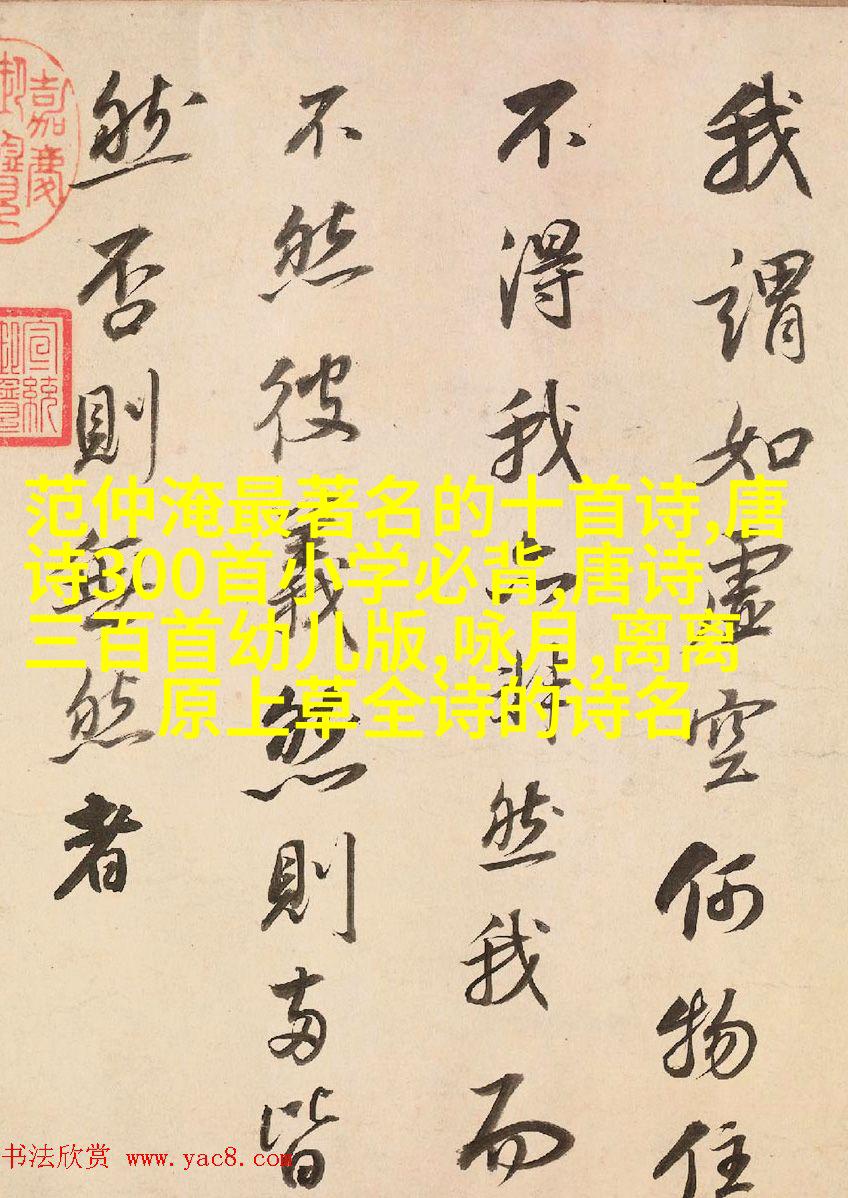 我謂如虛空何物住
不得我非然我而
不然彼義然則兩皆
然否則無然者
嘉慶
宣統
范仲淹最著名的十首诗,唐
诗300首小学必背,唐诗
三百首幼儿版,咏月,离离
原上草全诗的诗名
书法欣赏 www.yac8.com